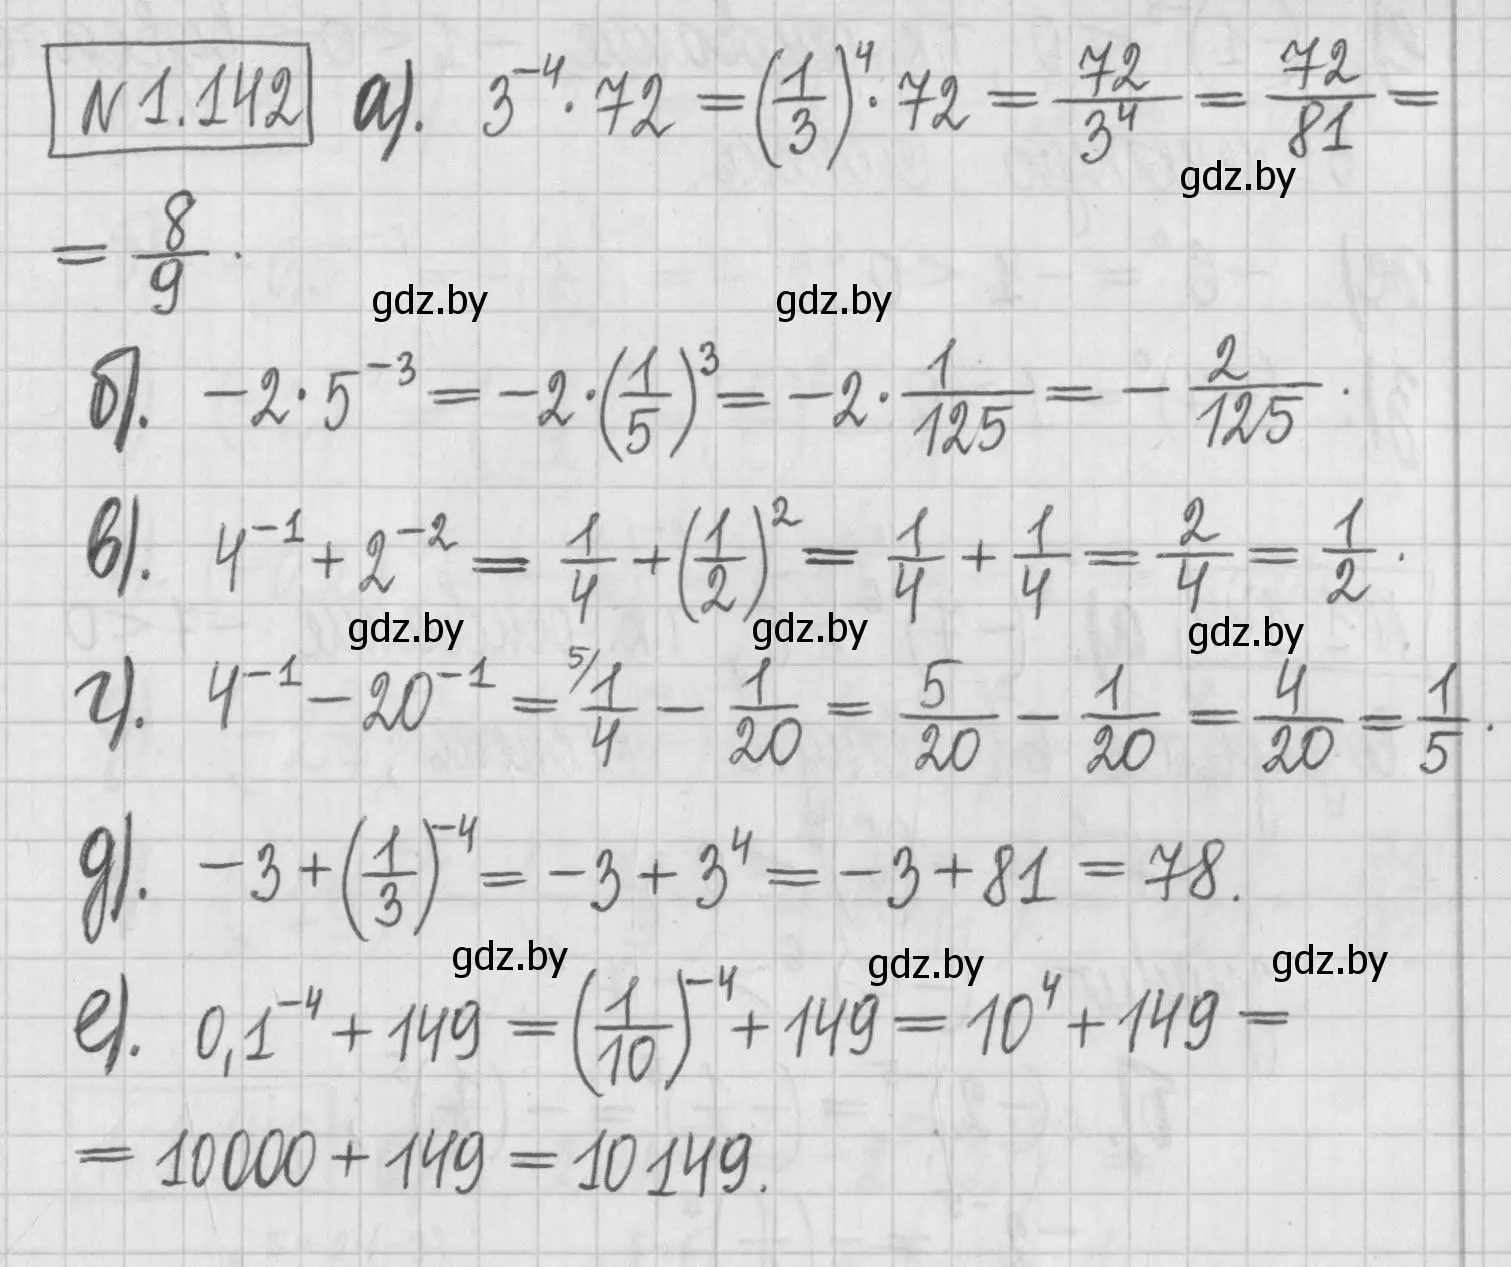 N 1.142 а). 3^{-4} · 72 = (1/3)^4 · 72 = 72/3^4 = 72/81 =
gdz.by
= 8/9 .
gdz.by gdz.by
б). -2 · 5^{-3} = -2 · (1/5)^3 = -2 · 1/125 = - 2/125 .
в). 4^{-1} + 2^{-2} = 1/4 + (1/2)^2 = 1/4 + 1/4 = 2/4 = 1/2 .
gdz.by gdz.by gdz.by
г). 4^{-1} - 20^{-1} = ^{5/} 1/4 - 1/20 = 5/20 - 1/20 = 4/20 = 1/5 .
д). -3 + (1/3)^{-4} = -3 + 3^4 = -3 + 81 = 78.
gdz.by gdz.by gdz.by
е). 0,1^{-4} + 149 = (1/10)^{-4} + 149 = 10^4 + 149 =
= 10000 + 149 = 10149.